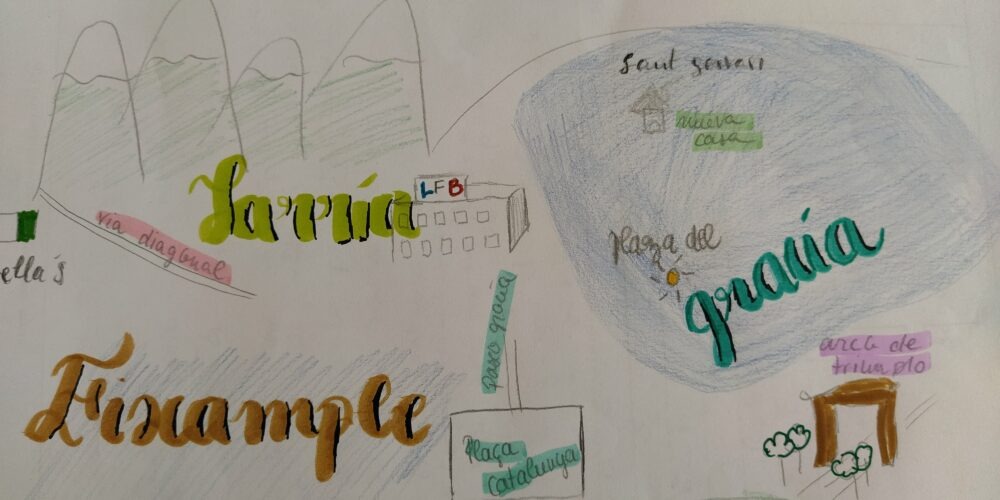 Sant gervasi
nueva
casa
Sarría
LFB
via diagonal
ella's
plaza del
gracia
paso gracia
arco de
triumplo
Eixample
Plaça
Catalunya